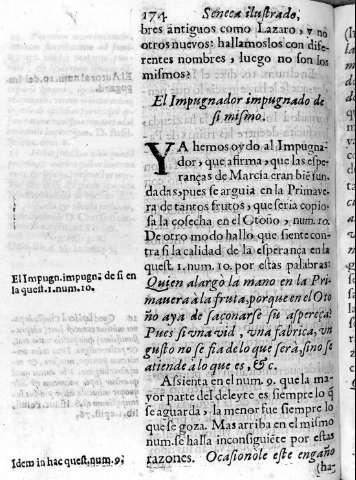 174 Seneca ilustrado,
bres antiguos como Lazaro, y no
otros nuevos? hallamoslos con dife-
rentes nombres, luego no son los
mismos?
El Impugnador impugnado de
si mismo.
YA hemos oydo al Impugna-
dor, que afirma, que las espe-
ranças de Marcia eran biẽ fun-
dadas, pues se arguia en la Primave
ra de tantos frutos, que seria copio-
sa la cosecha en el Otoño, num. 10.
De otro modo hallo que siente con-
tra si la calidad de la esperança en la
quest. 1. num. 10. por estas palabras:
El Impugn. impugn. de si en
la quest. 1. num. 10.
Quien alargò la mano en la Pri-
mauera à la fruta, porque en el Oto
ño aya de saçonarse su aspereça?
Pues si vna vid, vna fabrica, vn
gusto no se fia de lo que serà, sino se
atiende à lo que es, &c.
Assienta en el num. 9. que la ma-
yor parte del deleyte es siempre lo q̃
se aguarda, la menor fue siempre lo
que se goza. Mas arriba en el mismo
num. se halla inconsiguiẽte por estas
Idem in hac quest. num. 9.
razones. Ocasionòle este engaño
(ha-